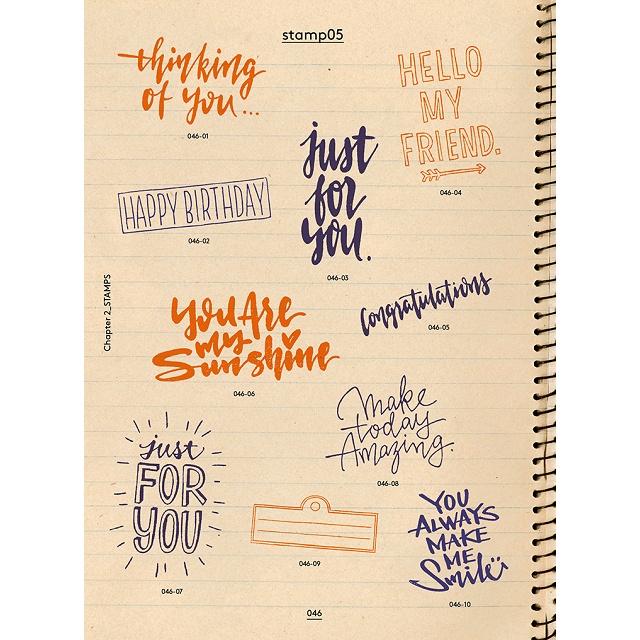 stamp05
thinking
of you...
046-01
HELLO
MY
FRIEND.
046-04
just
for
you.
046-03
HAPPY BIRTHDAY
046-02
Chapter 2_STAMPS
congratulations
046-05
you Are
my
Sunshine
046-06
Make
today
Amazing.
046-08
just
FOR
YOU
046-07
046-09
YOU
ALWAYS
MAKE
ME
Smile
046-10
046